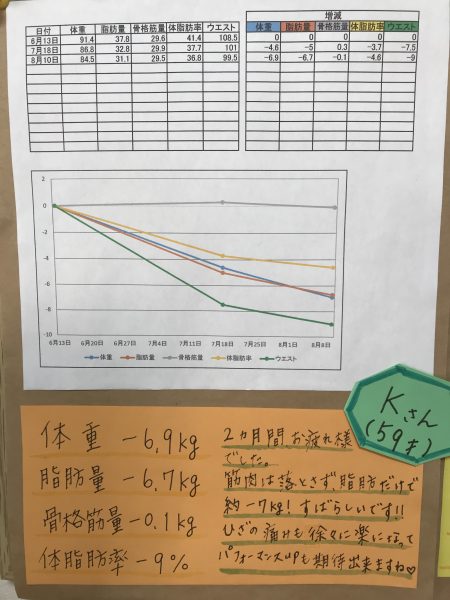 増減
日付 体重 脂肪量 骨格筋量 体脂肪率 ウエスト 体重 脂肪量 骨格筋量 体脂肪率 ウエスト
6月13日 91.4 37.8 29.6 41.4 108.5 0 0 0 0 0
7月18日 86.8 32.8 29.9 37.7 101 -4.6 -5 0.3 -3.7 -7.5
8月10日 84.5 31.1 29.5 36.8 99.5 -6.9 -6.7 -0.1 -4.6 -9
2
0
-2
-4
-6
-8
-10
6月13日 6月20日 6月27日 7月4日 7月11日 7月18日 7月25日 8月1日 8月8日
体重 脂肪量 骨格筋量 体脂肪率 ウエスト
Kさん
(59才)
体重 -6.9kg
脂肪量 -6.7kg
骨格筋量 -0.1kg
体脂肪率 -9%
2ヵ月間、お疲れ様
でした。
筋肉は落とさず、脂肪だけで
約-7kg!すばらしいです!!
ひざの痛みも徐々に楽になって
パフォーマンスUPも期待出来ますね♡